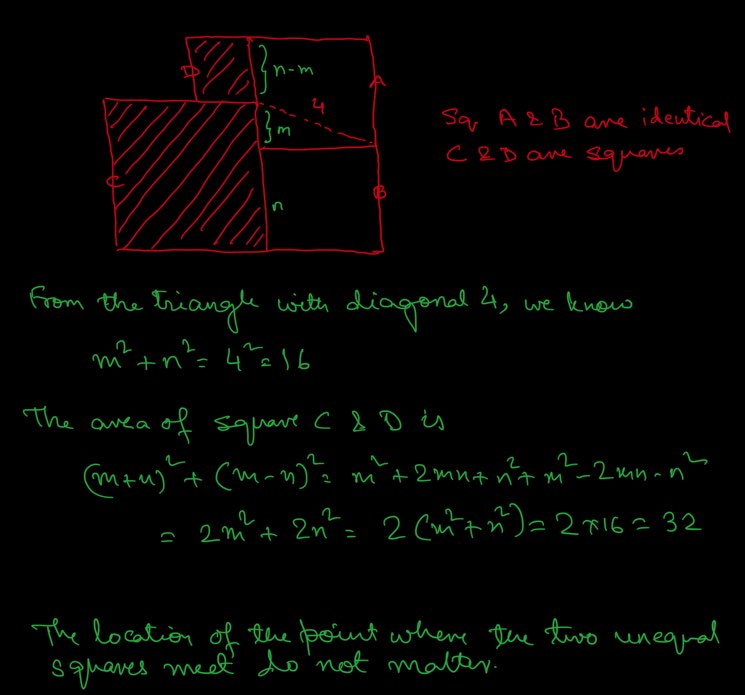 D
} n-m
A
4
} m
Sq A & B are identical
C & D are squares
C
B
n
From the triangle with diagonal 4, we know
m² + n² = 4² = 16
The area of square C & D is
(m+n)² + (m-n)² = m² + 2mn + n² + m² - 2mn - n²
= 2m² + 2n² = 2(m² + n²) = 2×16 = 32
The location of the point where the two unequal
squares meet do not matter.